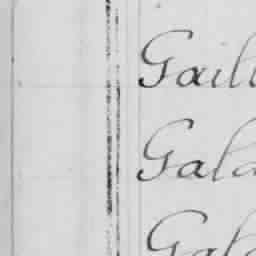 Gaill
Gala
Gala